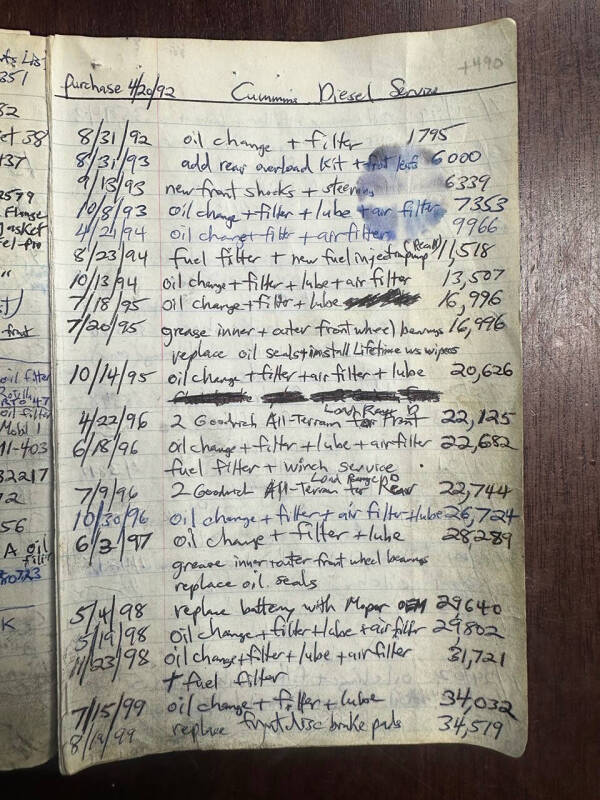 ts List
351
32
et 38
437
2579
Flange
Gasket
Fel-Pro
"
front
oil filter
RTO 47
oil filter
Mobil 1
M1-403
32217
12
56
A oil
filter
K
+490
purchase 4/20/92 Cummins Diesel Service
8/31/92 oil change + filter 1795
8/31/93 add rear overload kit + front leafs 6000
9/13/93 new front shocks + steering 6339
10/8/93 oil change + filter + lube + air filter 7353
4/21/94 oil change + filter + air filter 9966
8/23/94 fuel filter + new fuel injector pump (Recall) 11,518
10/13/94 oil change + filter + lube + air filter 13,507
7/18/95 oil change + filter + lube 16,996
7/20/95 grease inner + outer front wheel bearings 16,996
replace oil seals + install Lifetime ws wipers
10/14/95 oil change + filter + air filter + lube 20,626
4/22/96 2 Goodrich All-Terrain Load Range D for Front 22,125
6/18/96 oil change + filter + lube + air filter 22,682
fuel filter + winch service
7/9/96 2 Goodrich All-Terrain Load Range D for Rear 22,744
10/30/96 oil change + filter + air filter + lube 26,724
6/3/97 oil change + filter + lube 28289
grease inner + outer front wheel bearings
replace oil seals
5/4/98 replace battery with Mopar OEM 29640
5/19/98 oil change + filter + lube + air filter 29,802
11/23/98 oil change + filter + lube + air filter 31,721
+ fuel filter
7/15/99 oil change + filter + lube 34,032
8/19/99 replace front disc brake pads 34,519